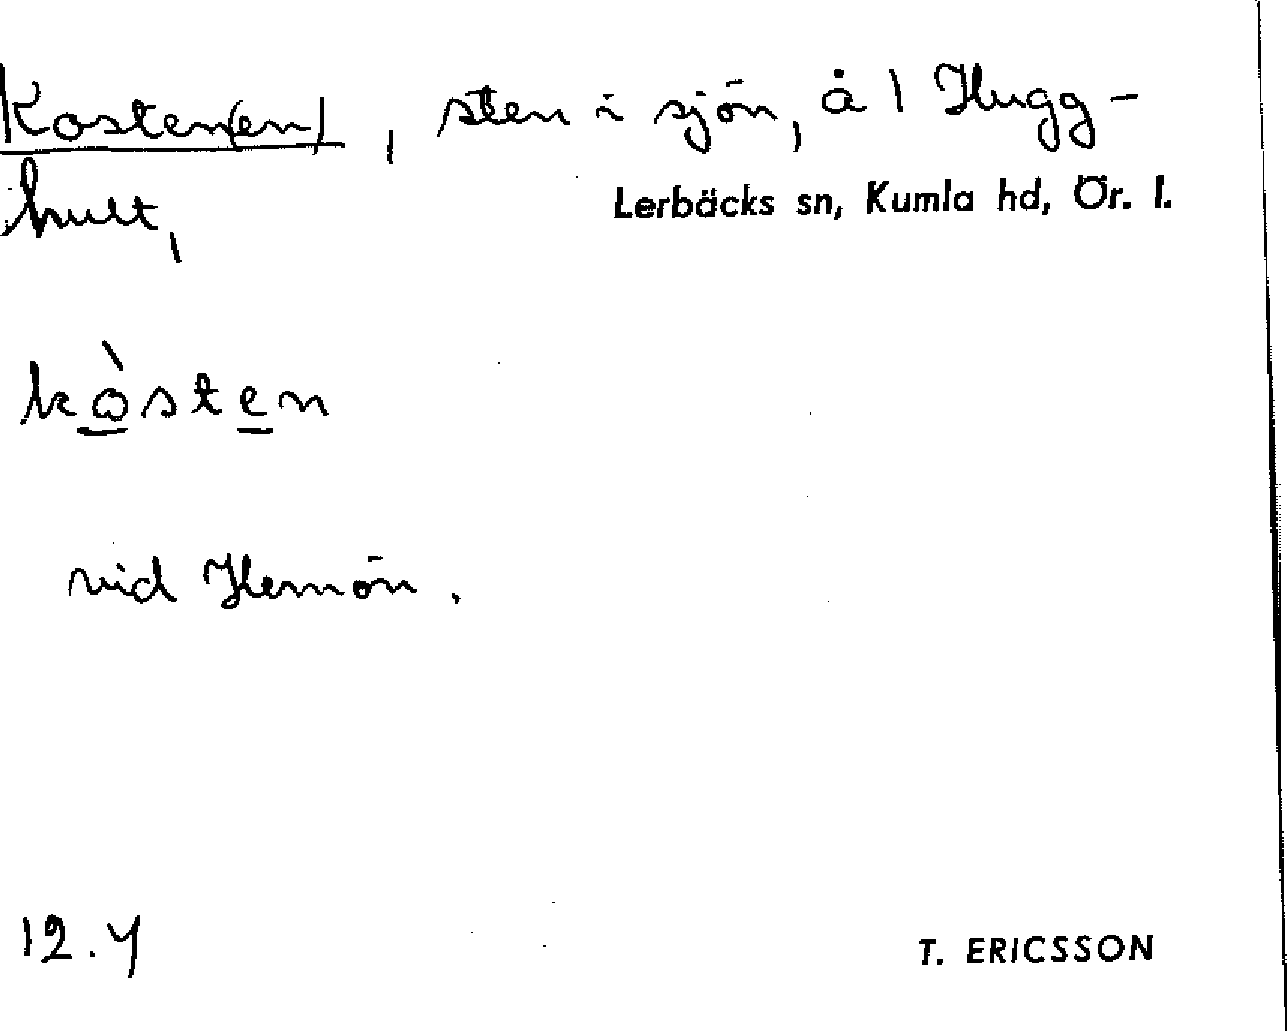 Kosten(en), sten i sjön, å 1 Hugg-
hult,
Lerbäcks sn, Kumla hd, Ör. l.
kòsten
vid Hemön.
12.4
T. ERICSSON